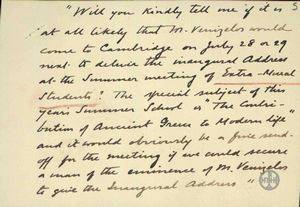 5
"Will you kindly tell me if it is
at all likely that M. Venizelos would
come to Cambridge on July 28 or 29
next to deliver the inaugural Address
at the Summer meeting of Extra-Mural
Students? The special subject of this
year's Summer School is "The Contri-
bution of Ancient Greece to Modern Life"
and it would obviously be a fine send-
off for the meeting if we could secure
a man of the eminence of M. Venizelos
to give the Inaugural Address"